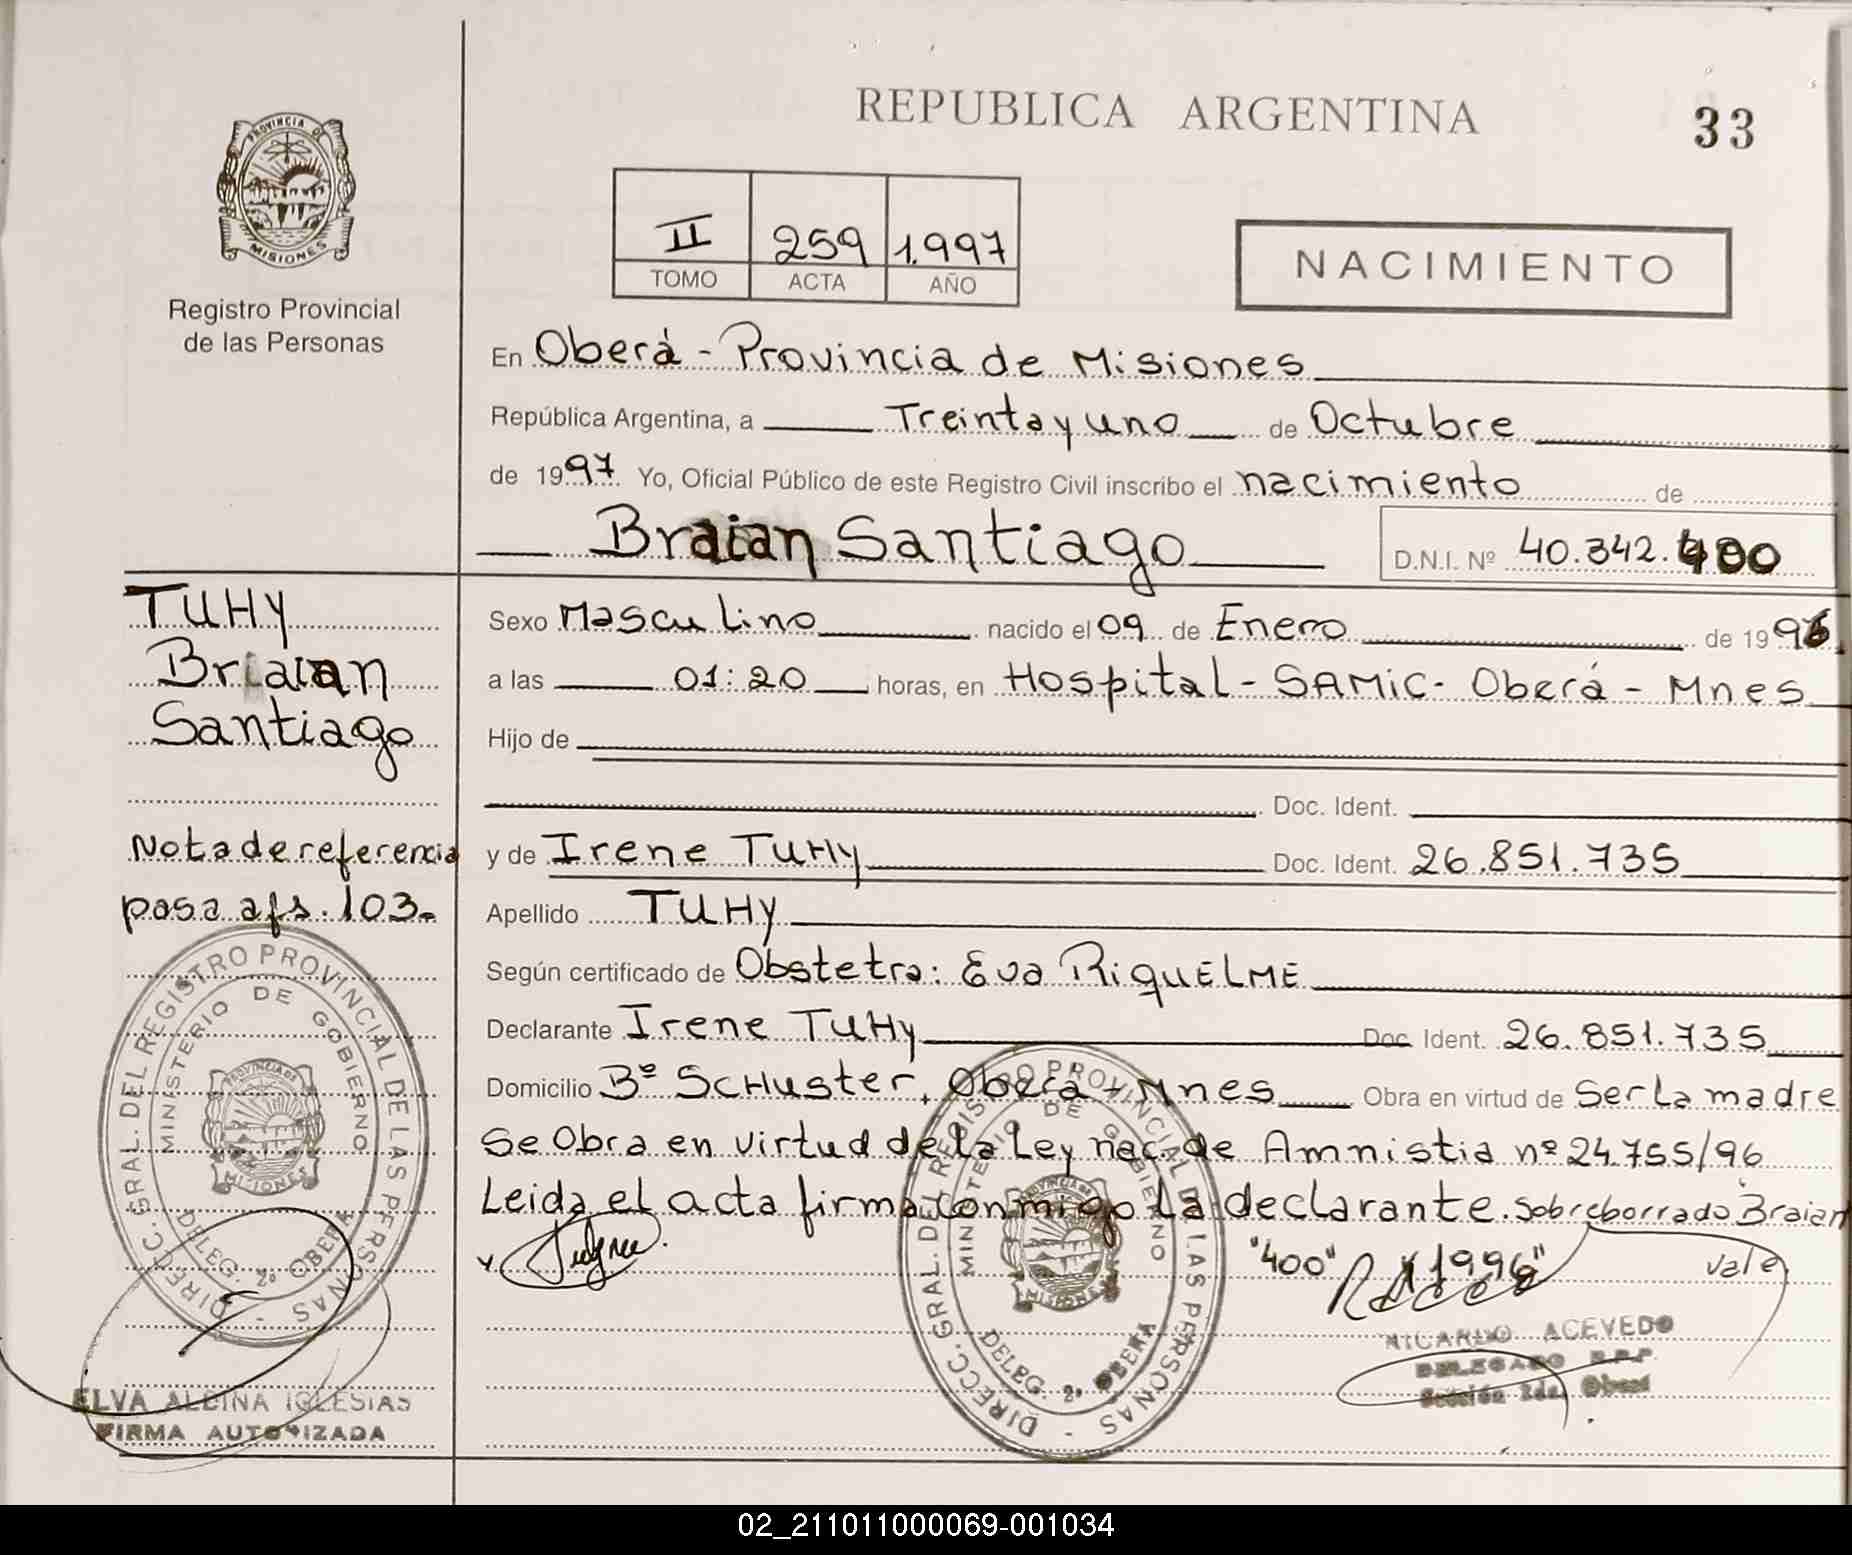 REPUBLICA ARGENTINA
33
PROVINCIA DE
MISIONES
Registro Provincial
de las Personas
II 259 1.997
TOMO ACTA AÑO
NACIMIENTO
En Oberá - Provincia de Misiones
República Argentina, a Treinta y uno de Octubre
de 1997 Yo, Oficial Público de este Registro Civil inscribo el nacimiento de
Braian Santiago D.N.I. Nº 40.342.400
TUHY
Braian
Santiago
Nota de referencia
pasa a fs. 103.
Sexo Masculino nacido el 09 de Enero de 1996
a las 01:20 horas, en Hospital - SAMIC - Oberá - Mnes
Hijo de
Doc. Ident.
y de Irene TUHY Doc. Ident. 26.851.735
Apellido TUHY
Según certificado de Obstetra: Eva RiquELME
Declarante Irene TUHY Doc. Ident. 26.851.735
Domicilio Bº SCHuster, Oberá, Mnes Obra en virtud de Ser La madre
Se Obra en virtud de la Ley nac. de Amnistia nº 24.755/96
Leida el acta firma conmigo la declarante. Sobreborrado Braian
"400" y "1996" vale
DIRECC. GRAL. DEL REGISTRO PROVINCIAL DE LAS PERSONAS -
MINISTERIO DE GOBIERNO
DELEG. 2º OBERA
PROVINCIA DE
MISIONES
DIRECC. GRAL. DEL REGISTRO PROVINCIAL DE LAS PERSONAS -
MINISTERIO DE GOBIERNO
DELEG. 2º OBERA
MISIONES
RICARDO ACEVEDO
DELEGADO R.P.P.
Sección 2da. Oberá
ELVA ALBINA IGLESIAS
FIRMA AUTORIZADA
02_211011000069-001034